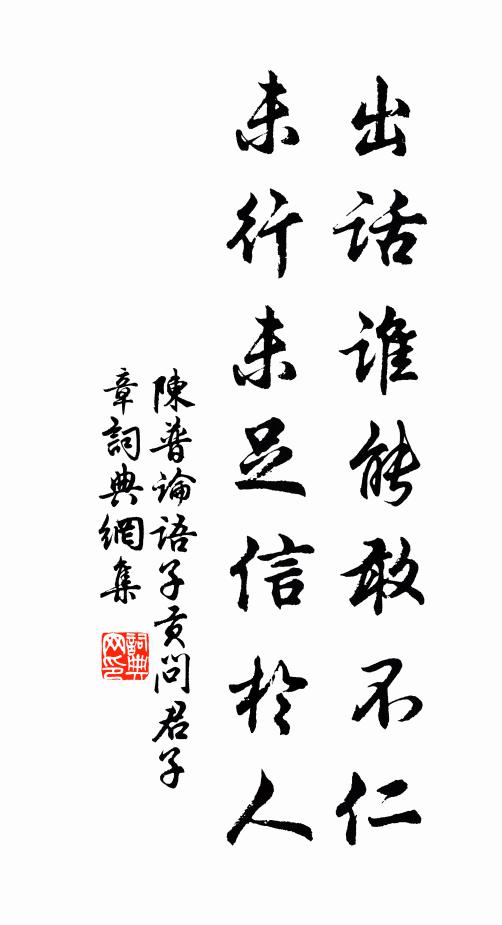 出話誰能敢不仁
未行未足信於人
陳普論語子貢問君子
章詞典網集
詞典
网印